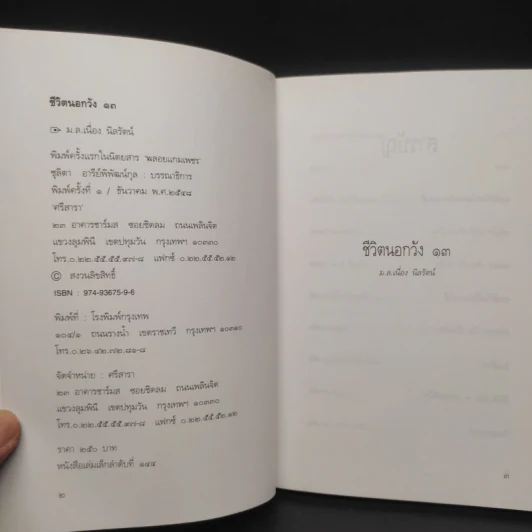 ชีวิตนอกวัง ๑๓
ม.ล.เนื่อง นิลรัตน์
พิมพ์ครั้งแรกในนิตยสาร 'พลอยแกมเพชร'
ชุลิตา อารีย์พิพัฒน์กุล : บรรณาธิการ
พิมพ์ครั้งที่ ๑ / ธันวาคม พ.ศ.๒๕๔๘
'ศรีสารา'
๒๓ อาคารชาร์มส ซอยชิดลม ถนนเพลินจิต
แขวงลุมพินี เขตปทุมวัน กรุงเทพฯ ๑๐๓๓๐
โทร.๐.๒๒.๕๕.๕๙๗-๘ แฟกซ์ ๐.๒๒.๕๕.๕๒.๑๒
© สงวนลิขสิทธิ์
ISBN : 974-93675-9-6
พิมพ์ที่ : โรงพิมพ์กรุงเทพ
ถนนรางน้ำ เขตราชเทวี กรุงเทพฯ
โทร.๐.๒๖.๔๒.๗๒.๘๑-๘
จัดจำหน่าย : ศรีสารา
๒๓ อาคารชาร์มส ซอยชิดลม ถนนเพลินจิต
แขวงลุมพินี เขตปทุมวัน กรุงเทพฯ ๑๐๓๓๐
โทร.๐.๒๒.๕๕.๕๙๗-๘ แฟกซ์ ๐.๒๒.๕๕.๕๒.๑๒
ราคา ๒๕๐ บาท
หนังสือเล่มเล็กลำดับที่ ๑๔๔
๒
ชีวิตนอกวัง ๑๓
ม.ล.เนื่อง นิลรัตน์
๓